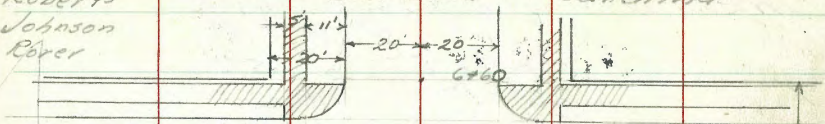 Roberts
Johnson
Rorer
5' 11'
20' 20
20'
6+60